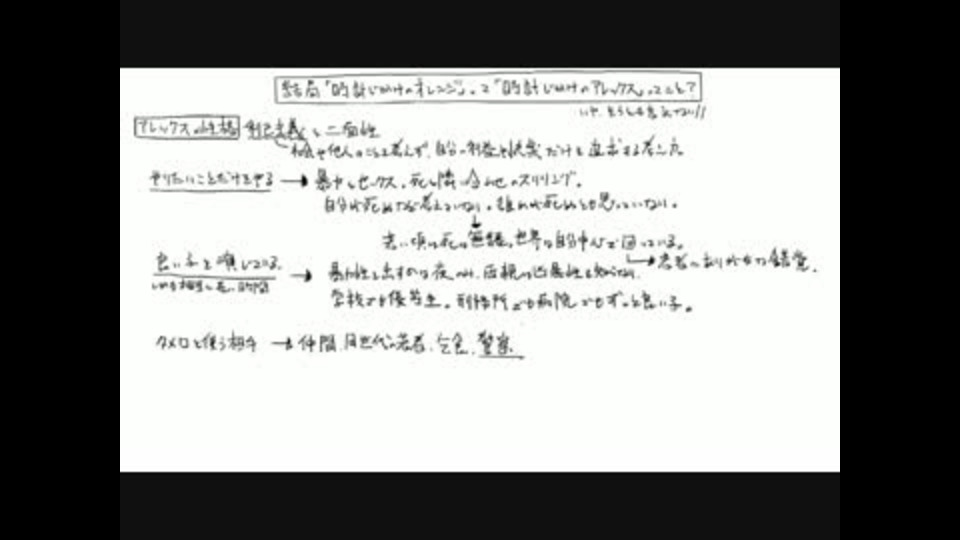 結局「時計じかけのオレンジ」って「時計じかけのアレックス」ってこと？
いや、そうとも言えない!!
アレックスの性格 利己主義と二面性
社会や他人のことを考えず、自分の利益や快楽だけを追求する考え方
やりたいことだけをやる → 暴力とセックス。死と隣り合わせのスリリング。
自分が死ぬなど考えていない。誰かが死ぬとも思っていない。
若い頃は死は無縁。世界は自分中心で回っている。
→ 若者にありがちな錯覚。
良い子を演じている → 暴力性を出すのは夜のみ。両親は凶暴性を知らない
しかも相当に長い時間
学校でも優等生。刑務所でも病院でもずっと良い子。
タメ口を使う相手 → 仲間、同世代の若者、乞食、警察